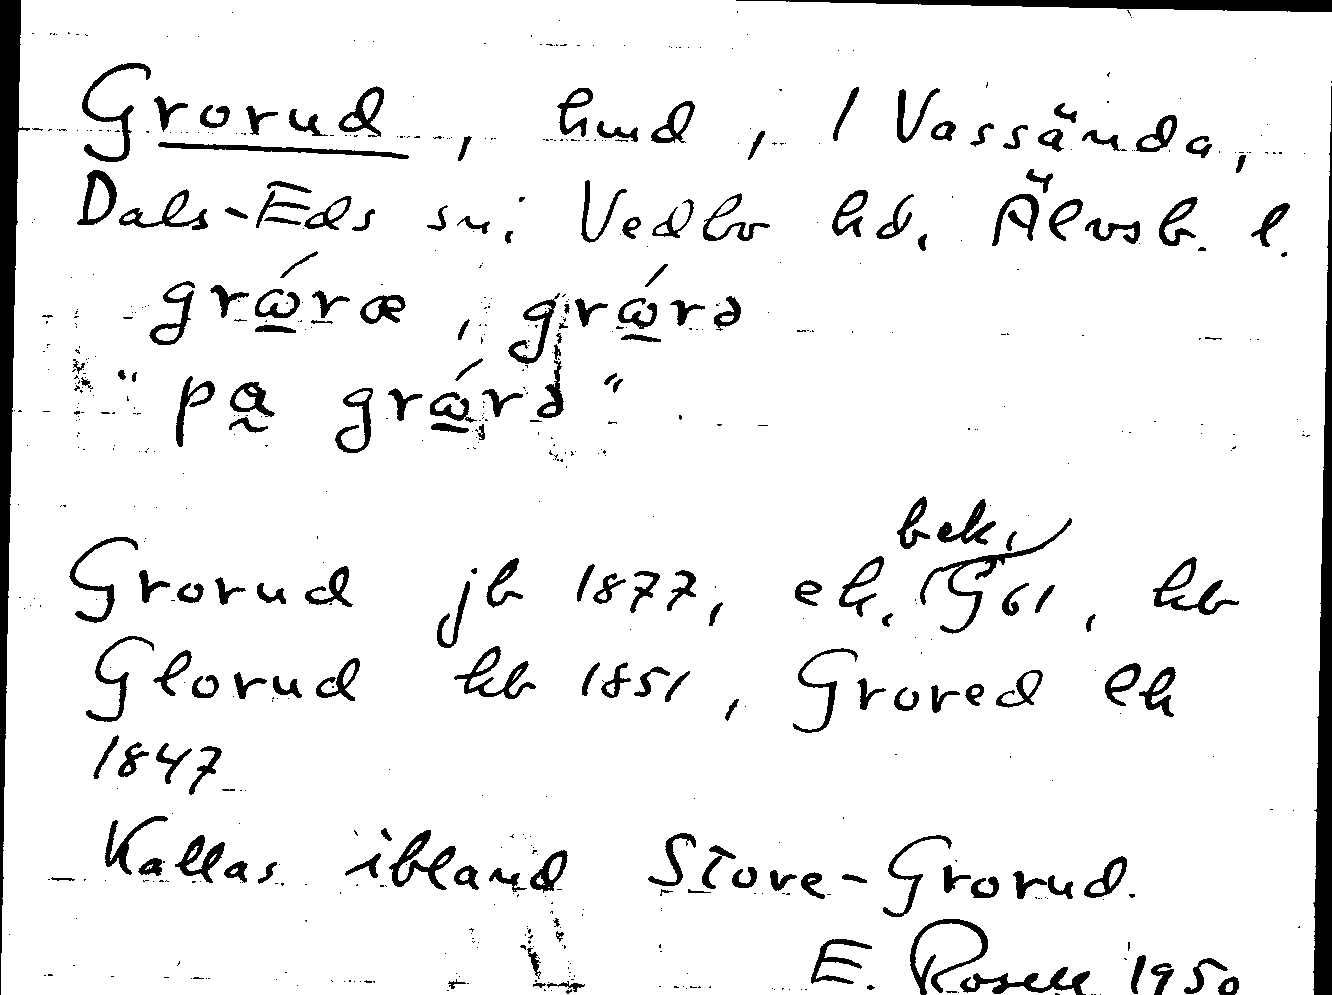 Grorud, hmd, / Vassända,
Dals-Eds sn; Vedbo hd. Älvsb. l.
grώ̱ræ, grώ̱rə
"pa̰ grώ̱rə".
bek.
Grorud jb 1877, ek. G 61, kb
Glorud kb 1851, Grored ek
1847
Kallas ibland Store-Grorud.
E. Rosell 1950